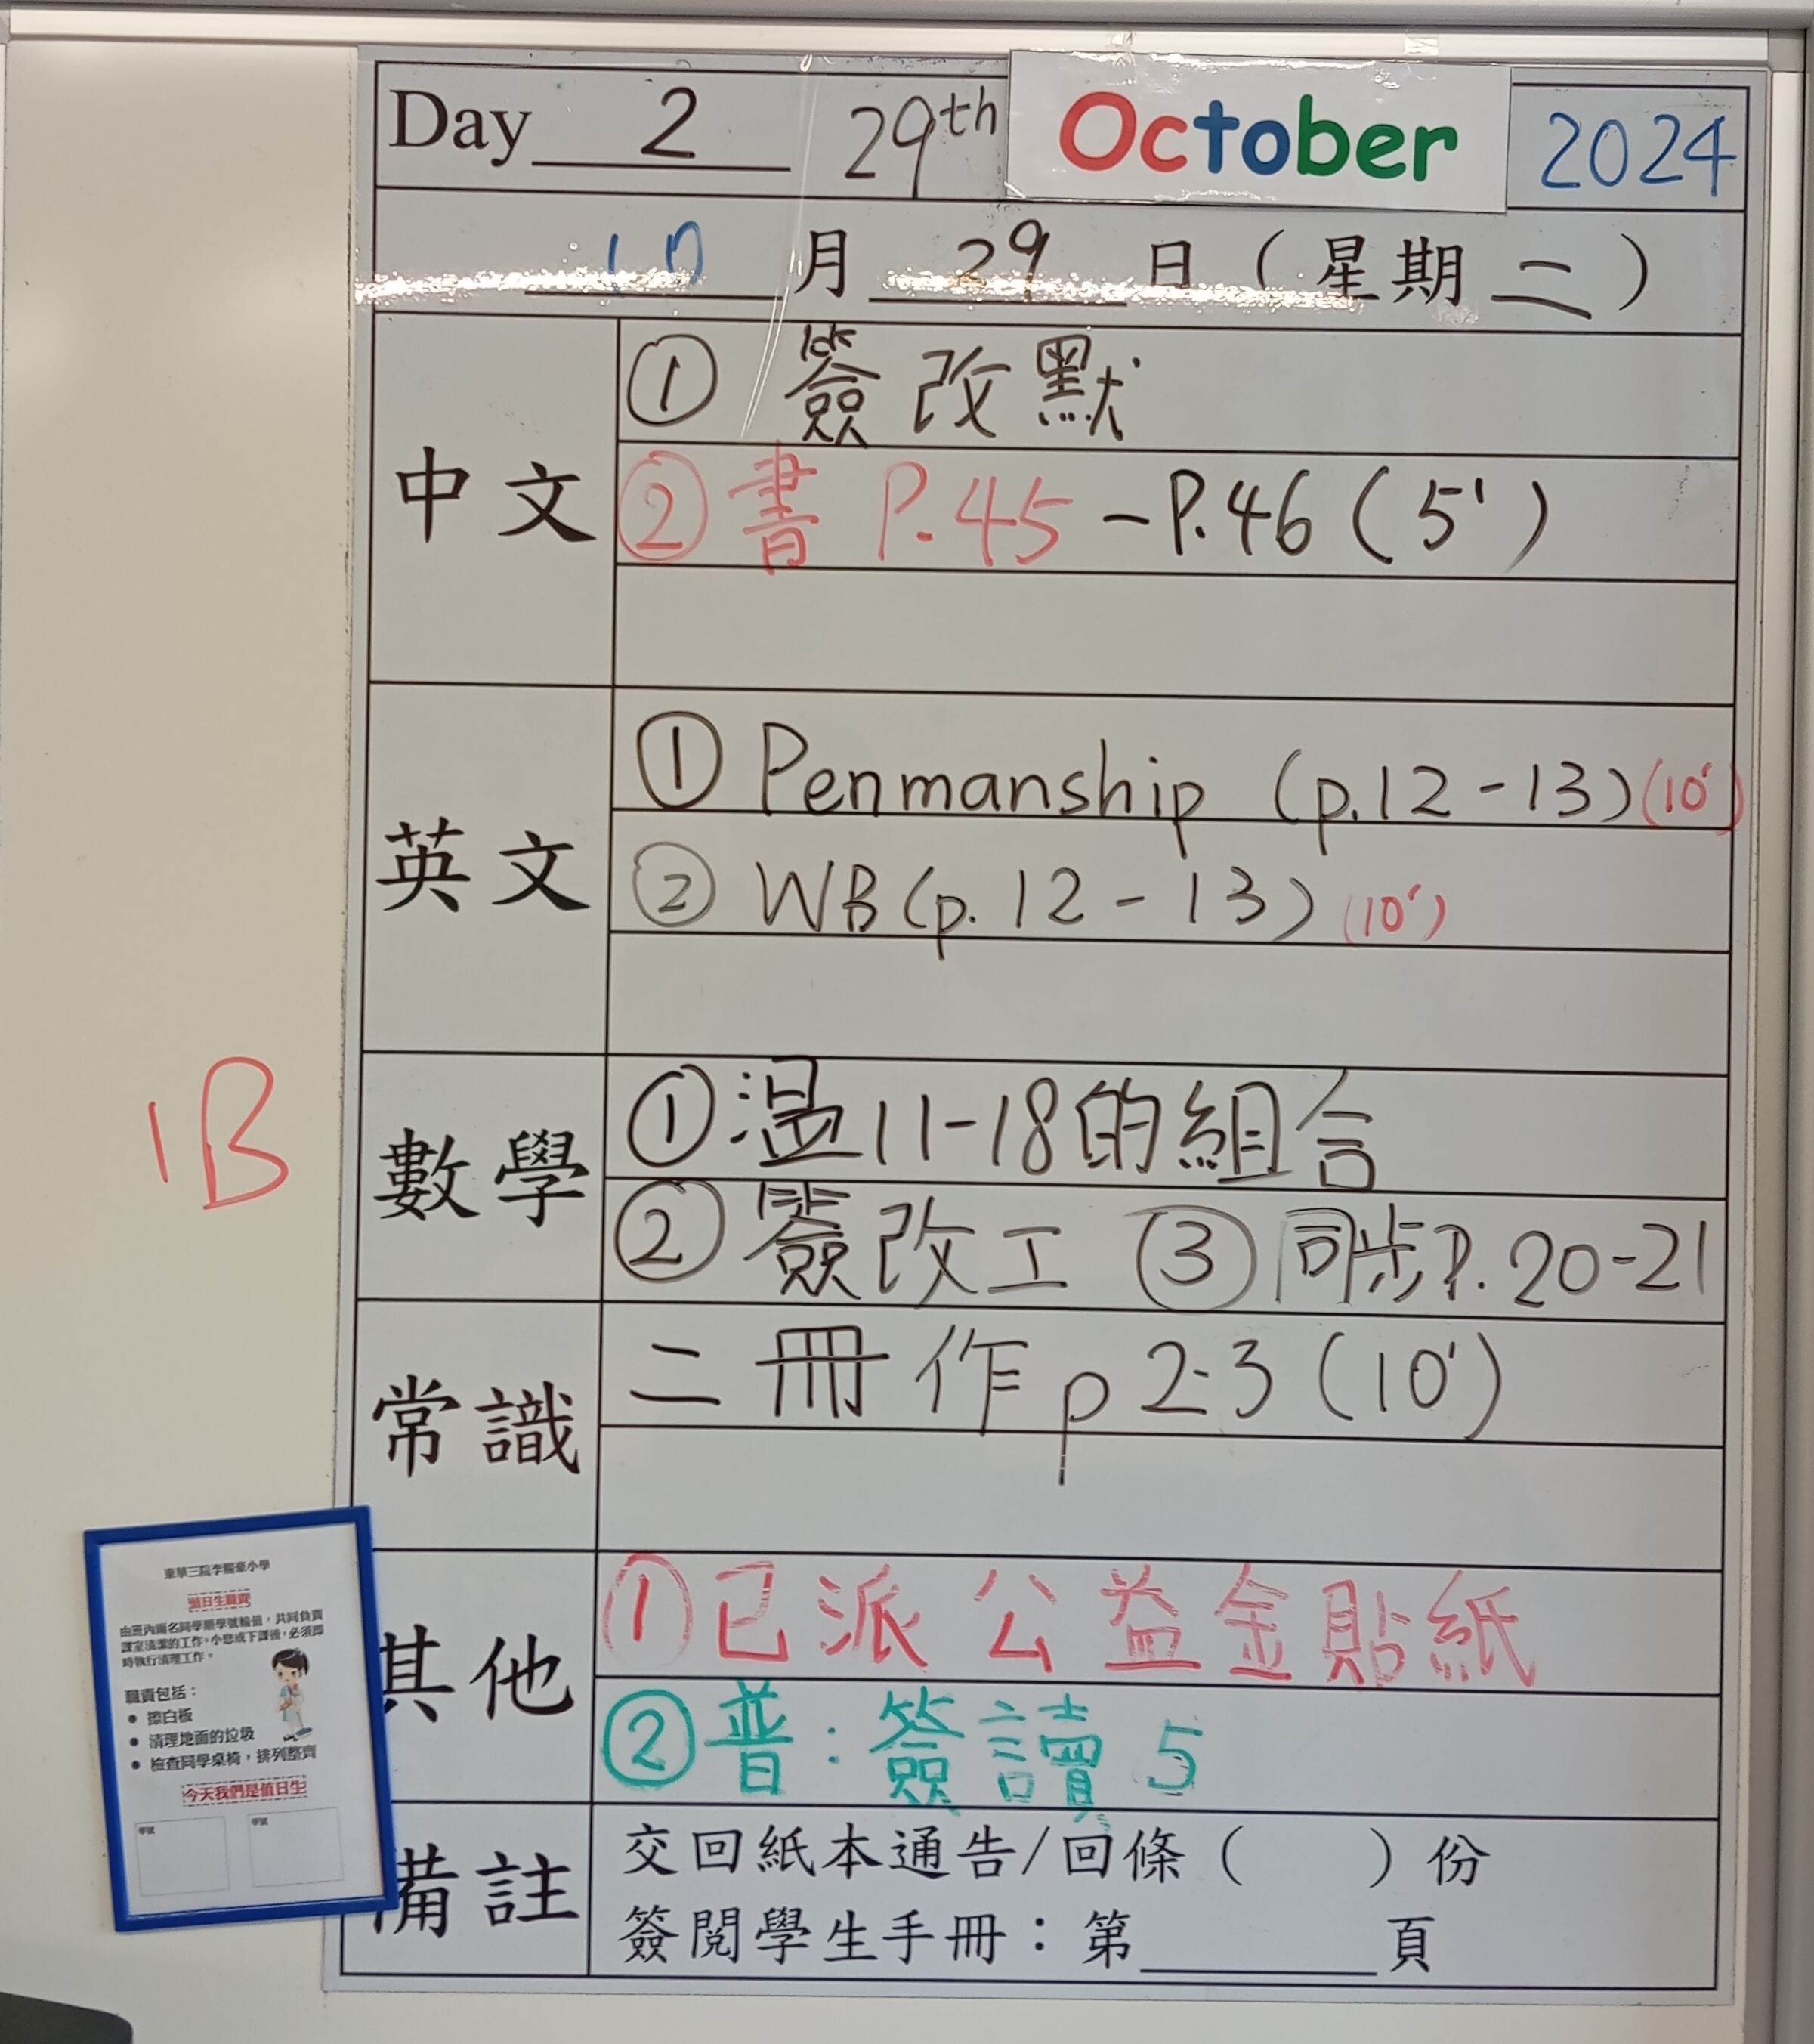 Day 2 29th October 2024
10 月 29 日 ( 星期 二 )
中文
① 簽改默
② 書 P.45 - P.46 ( 5' )
英文
① Penmanship (p.12 - 13) (10')
② WB (p. 12 - 13) (10')
1B
數學
① 温 11-18 的組合
② 簽改工 ③ 同步 P. 20-21
常識
二冊作 p 2-3 (10')
其他
① 已派公益金貼紙
② 普 : 簽讀 5
備註
交回紙本通告/回條 ( ) 份
簽閱學生手冊：第 頁
東華三院李賜豪小學
值日生職責
由班內兩名同學順學號輪值，共同負責
課室清潔的工作。小息或下課後，必須即
時執行清理工作。
職責包括：
● 擦白板
● 清理地面的垃圾
● 檢查同學桌椅，排列整齊
今天我們是值日生
學號
學號